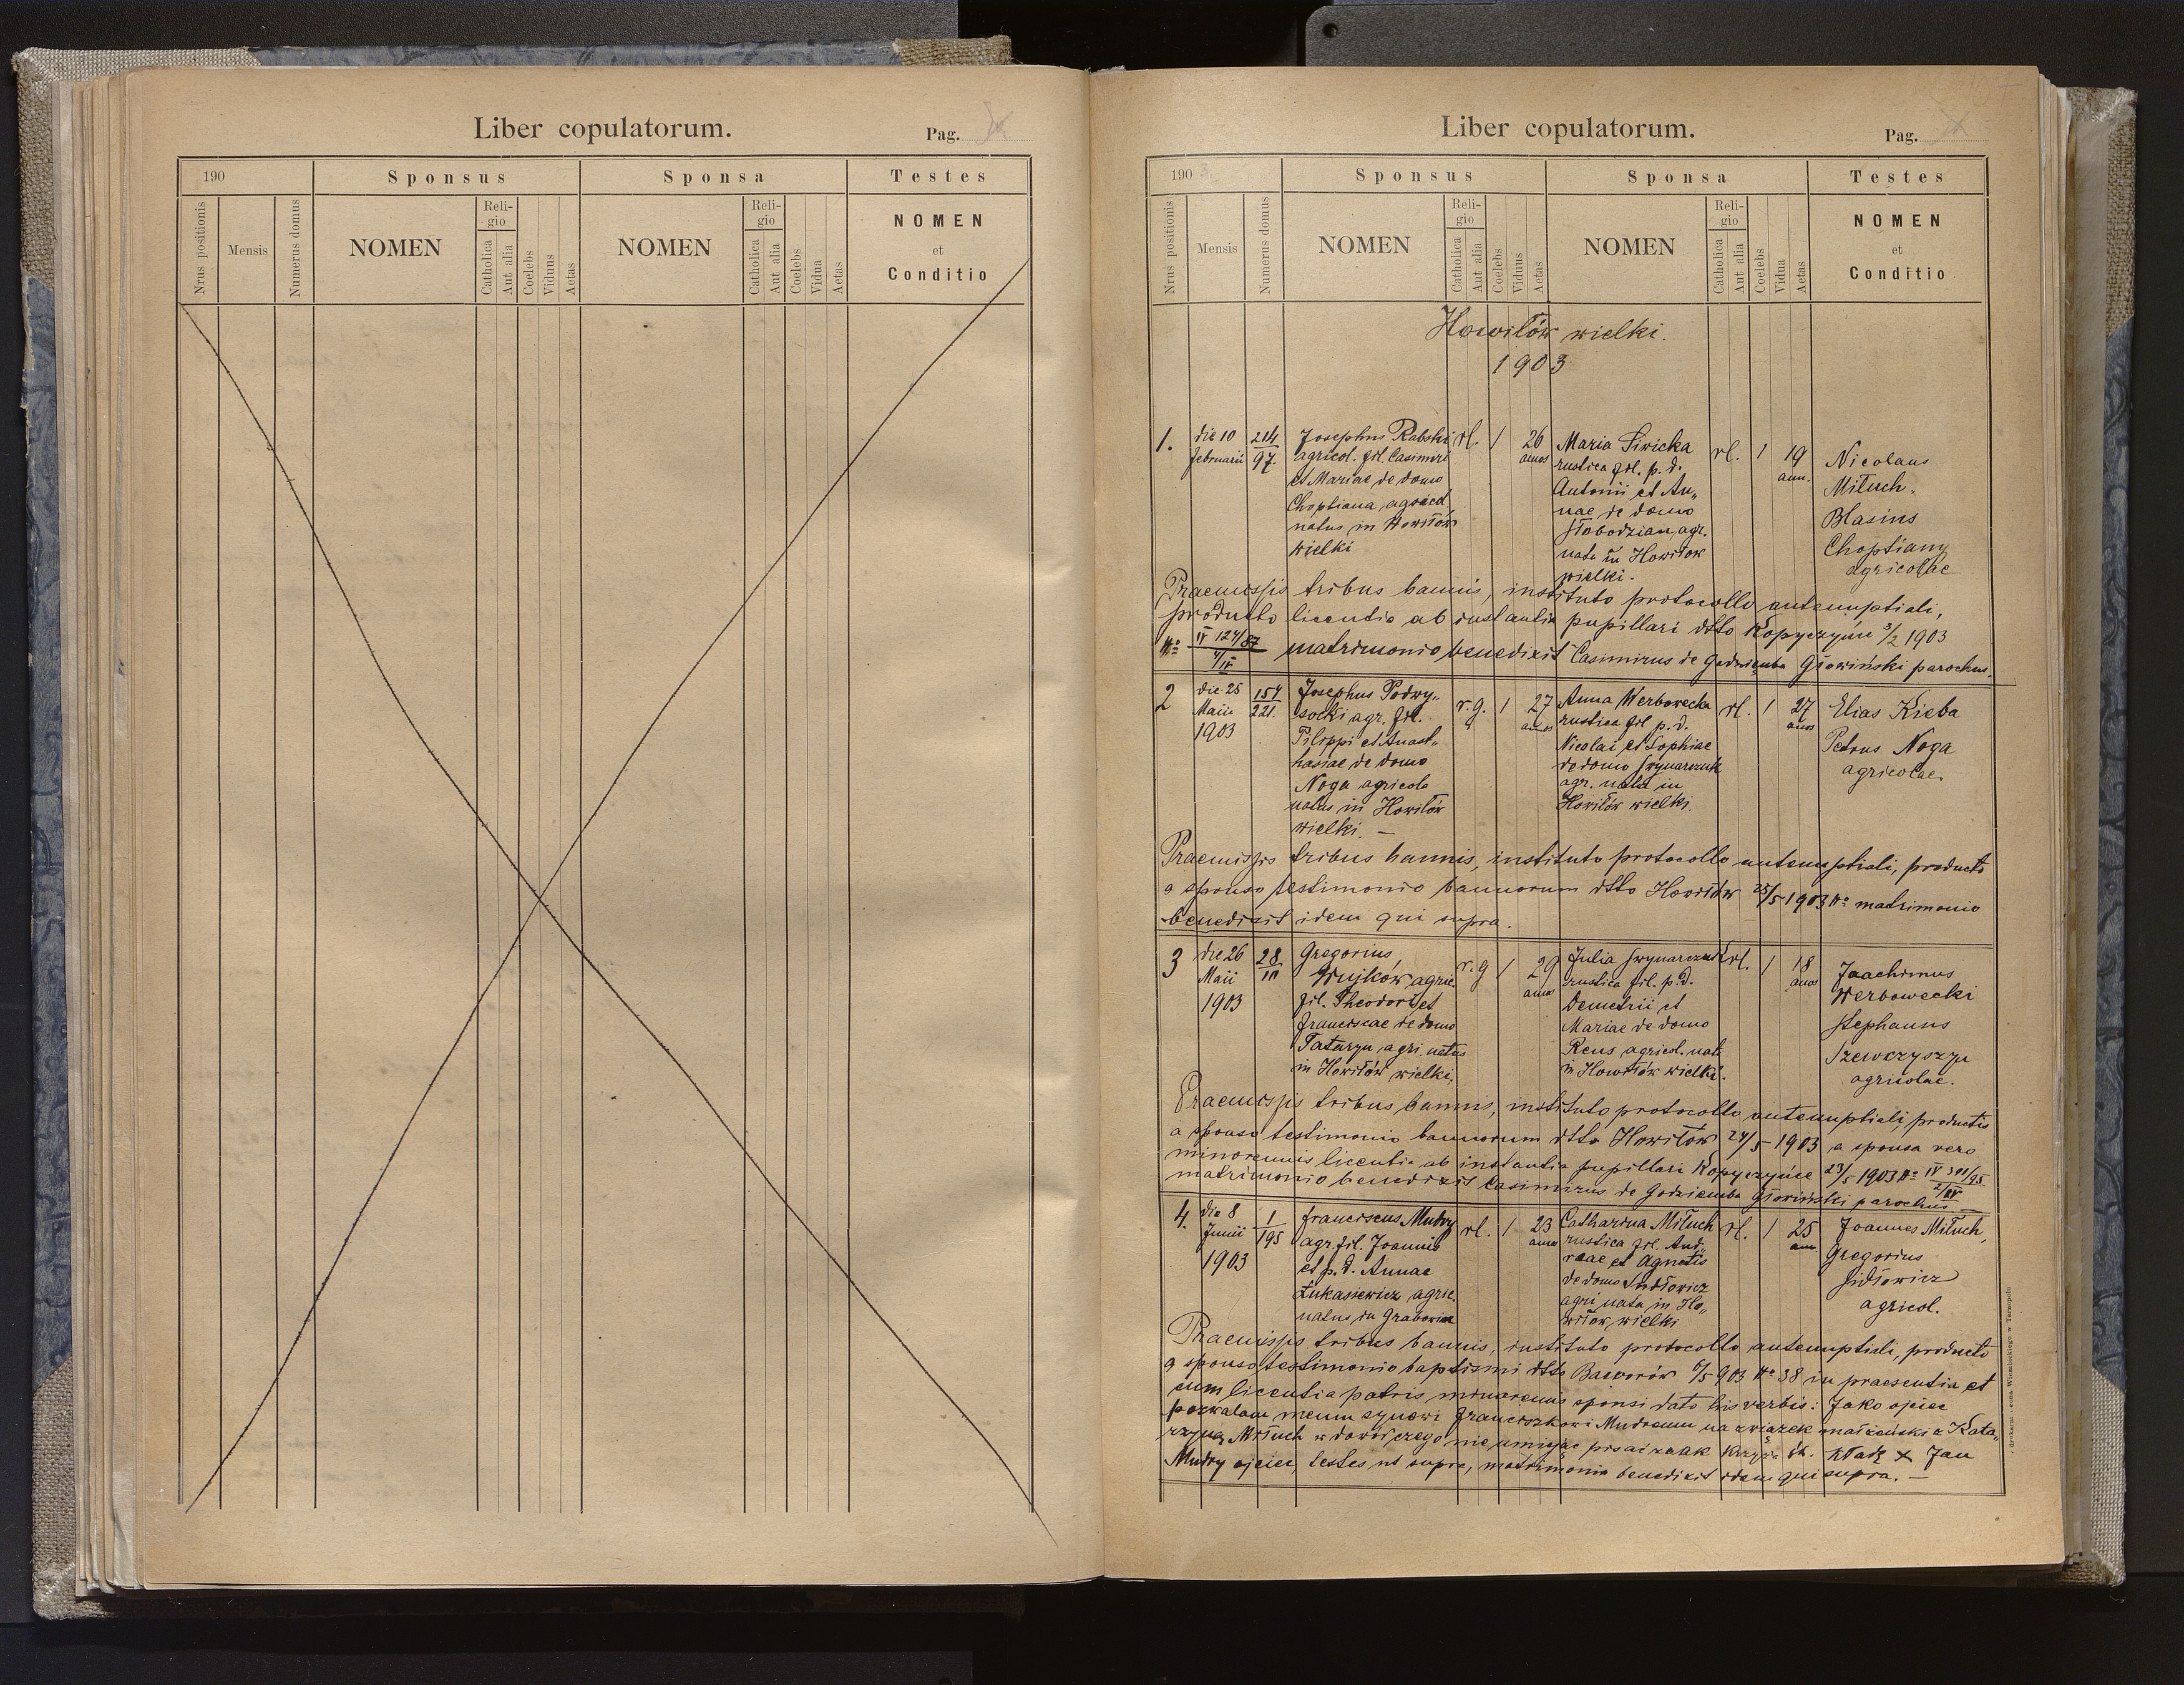 Liber copulatorum.
Pag.
190
Sponsus
Sponsa
Testes
Nrus positionis
Mensis
Numerus domus
NOMEN
Religio
Catholica
Aut alia
Coelebs
Viduus
Aetas
NOMEN
Religio
Catholica
Aut alia
Coelebs
Vidua
Aetas
NOMEN
et
Conditio
Liber copulatorum.
Pag.
190
Sponsus
Sponsa
Testes
Nrus positionis
Mensis
Numerus domus
NOMEN
Religio
Catholica
Aut alia
Coelebs
Viduus
Aetas
NOMEN
Religio
Catholica
Aut alia
Coelebs
Vidua
Aetas
NOMEN
et
Conditio
Howiłów wielki.
1903
1.
die 10
februarii
214
97.
Josephus Rabski
agricol. fil. Casimiri
et Mariae de domo
Choptiana agricol.
natus in Howiłów
wielki
rl.
1
26
annos
Maria Siwicka
rustica fil. p. d.
Antonii et An„
nae de domo
Słobodzian, agr.
nata in Howiłow
wielki.
rl.
1
19
ann.
Nicolaus
Miłuch.
Blasius
Choptiany
agricolae
Praemissis tribus bannis, instituto protocollo antenuptiali,
producto licentia ab instantia pupillari dtto Kopyczyńce 3/2 1903
No IV 124/87
4/IV
matrimonio benedixit Casimirus de Godziemba Głowiński parochus.
2
die 25
Maii
1903
154
221.
Josephus Podwy„
socki agr. fil.
Pilippi et Anast„
hasiae de domo
Noga agricola
natus in Howiłów
wielki. —
r. g.
1
27
annos
Anna Werbowecka
rustica fil p. d.
Nicolai et Sophiae
de domo Swynarczuk
agr. nata in
Howiłów wielki.
rl.
1
27
annos
Elias Kieba
Petrus Noga
agricolae.
Praemissis tribus bannis, instituto protocollo antenuptiali, producto
a sponso testimonio bannorum dtto Howiłów 25/5 1903 No matrimonio
benedixit idem qui supra.
3
die 26
Maii
1903
28
Gregorius
Wujków, agric.
fil. Theodori et
franciscae de domo
Tataryn, agri. natus
in Howiłów wielki.
r. g
1
29
annos
Julia Swynarczuk
rustica fil. p. d.
Demetrii et
Mariae de domo
Reus agricol. nata
in Howiłów wielki.
rl.
1
18
annos
Joachimus
Werbowecki
Stephanus
Szewczyszyn
agricolae.
Praemissis tribus bannis, instituto protocollo antenuptiali, productis
a sponso testimonio bannorum dtto Howiłów 24/5 1903 a sponsa vero
minorennis licentia ab instantia pupillari Kopyczyńce 23/5 1903 No IV 391/95
matrimonio benedixit Casimirus de Godziemba Głowiński parochus. —
4.
die 8
Junii
1903
1
195
franciscus Mudry
agr. fil. Joannis
et p. d. Annae
Łukasiewicz agric.
natus in
rl.
1
23
annos
Catharina Miłuch
rustica fil. And„
reae et Agnetis
de domo Sidłowicz
agri nata in Ho„
wiłow wielki
rl.
1
25
ann.
Joannes Miłuch,
Gregorius
Sidłowicz
agricol.
Praemissis tribus bannis, instituto protocollo antenuptiali, producto
a sponso testimonio baptismi dtto Baworów 6/5 903 No 38 in praesentia et
cum licentia patris minorennis sponsi dato his verbis: Jako ojciec
pozwalam memu synowi Franciszkowi Mudremu na związek małżeński z Kata„
rzyną Miłuch w dowód czego nie umiejąc pisać znak krzyża św. kładę × Jan
Mudry ojciec, testes ut supra, matrimonio benedixit idem qui supra. —